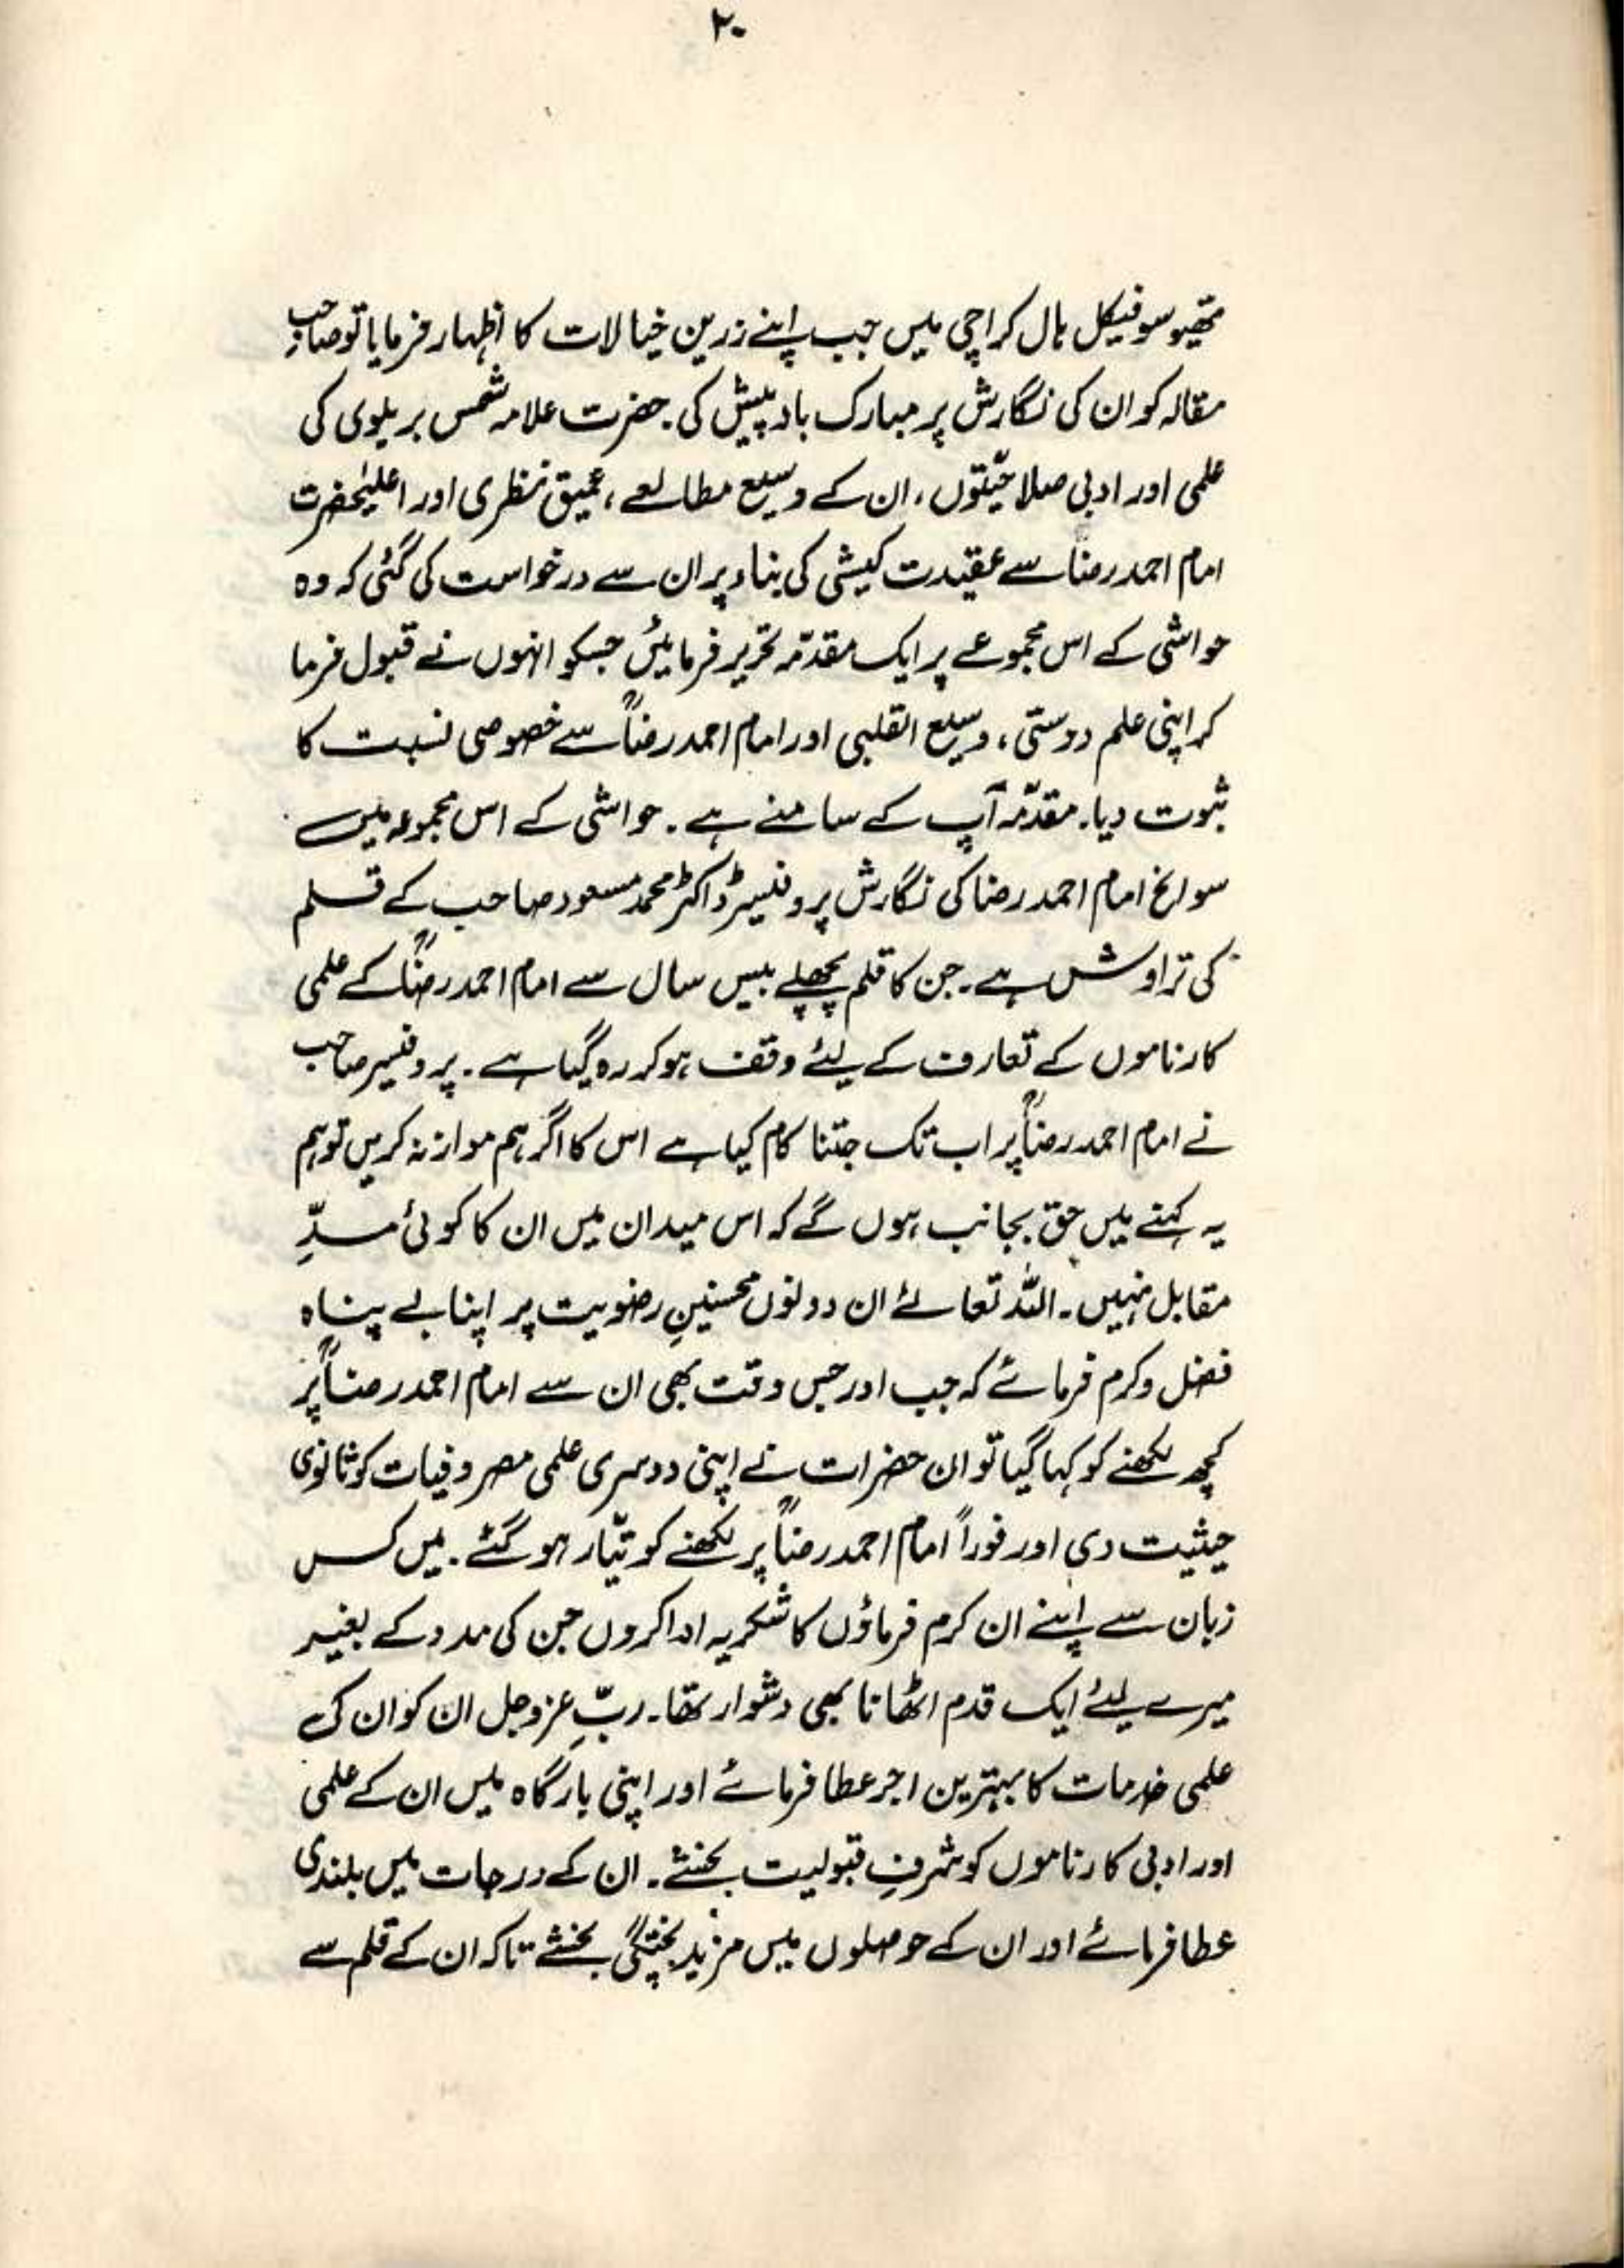 ۲۰
تھیوسوفیکل ہال کراچی میں جب اپنے زرین خیالات کا اظہار فرمایا تو صاحبِ
مقالہ کو ان کی نگارش پر مبارک باد پیش کی۔ حضرت علامہ شمس بریلوی کی
علمی اور ادبی صلاحیّتوں، ان کے وسیع مطالعے، عمیق نظری اور اعلیٰحضرت
امام احمد رضاؒ سے عقیدت کیشی کی بناء پر ان سے درخواست کی گئی کہ وہ
حواشی کے اس مجموعے پر ایک مقدّمہ تحریر فرمائیں جسکو انہوں نے قبول فرما
کر اپنی علم دوستی، وسیع القلبی اور امام احمد رضاؒ سے خصوصی نسبت کا
ثبوت دیا۔ مقدّمہ آپ کے سامنے ہے۔ حواشی کے اس مجموعہ میں
سوانح امام احمد رضا کی نگارش پروفیسر ڈاکٹر محمد مسعود صاحب کے قلم
کی تراوش ہے۔ جن کا قلم پچھلے بیس سال سے امام احمد رضاؒ کے علمی
کارناموں کے تعارف کے لیئے وقف ہوکر رہ گیا ہے۔ پروفیسر صاحب
نے امام احمد رضاؒ پر اب تک جتنا کام کیا ہے اس کا اگر ہم موازنہ کریں تو ہم
یہ کہنے میں حق بجانب ہوں گے کہ اس میدان میں ان کا کوئی مدِّ
مقابل نہیں۔ اللہ تعالےٰ ان دونوں محسنینِ رضویت پر اپنا بے پناہ
فضل وکرم فرمائے کہ جب اور جس وقت بھی ان سے امام احمد رضاؒ پر
کچھ لکھنے کو کہا گیا تو ان حضرات نے اپنی دوسری علمی مصروفیات کو ثانوی
حیثیت دی اور فوراً امام احمد رضاؒ پر لکھنے کو تیّار ہو گئے۔ میں کس
زبان سے اپنے ان کرم فرماؤں کا شکریہ ادا کروں جن کی مدد کے بغیر
میرے لیئے ایک قدم اٹھانا بھی دشوار تھا۔ ربِّ عزوجل ان کو ان کی
علمی خدمات کا بہترین اجر عطا فرمائے اور اپنی بارگاہ میں ان کے علمی
اور ادبی کارناموں کو شرفِ قبولیت بخشے۔ ان کے درجات میں بلندی
عطا فرمائے اور ان کے حوصلوں میں مزید پختگی بخشے تاکہ ان کے قلم سے